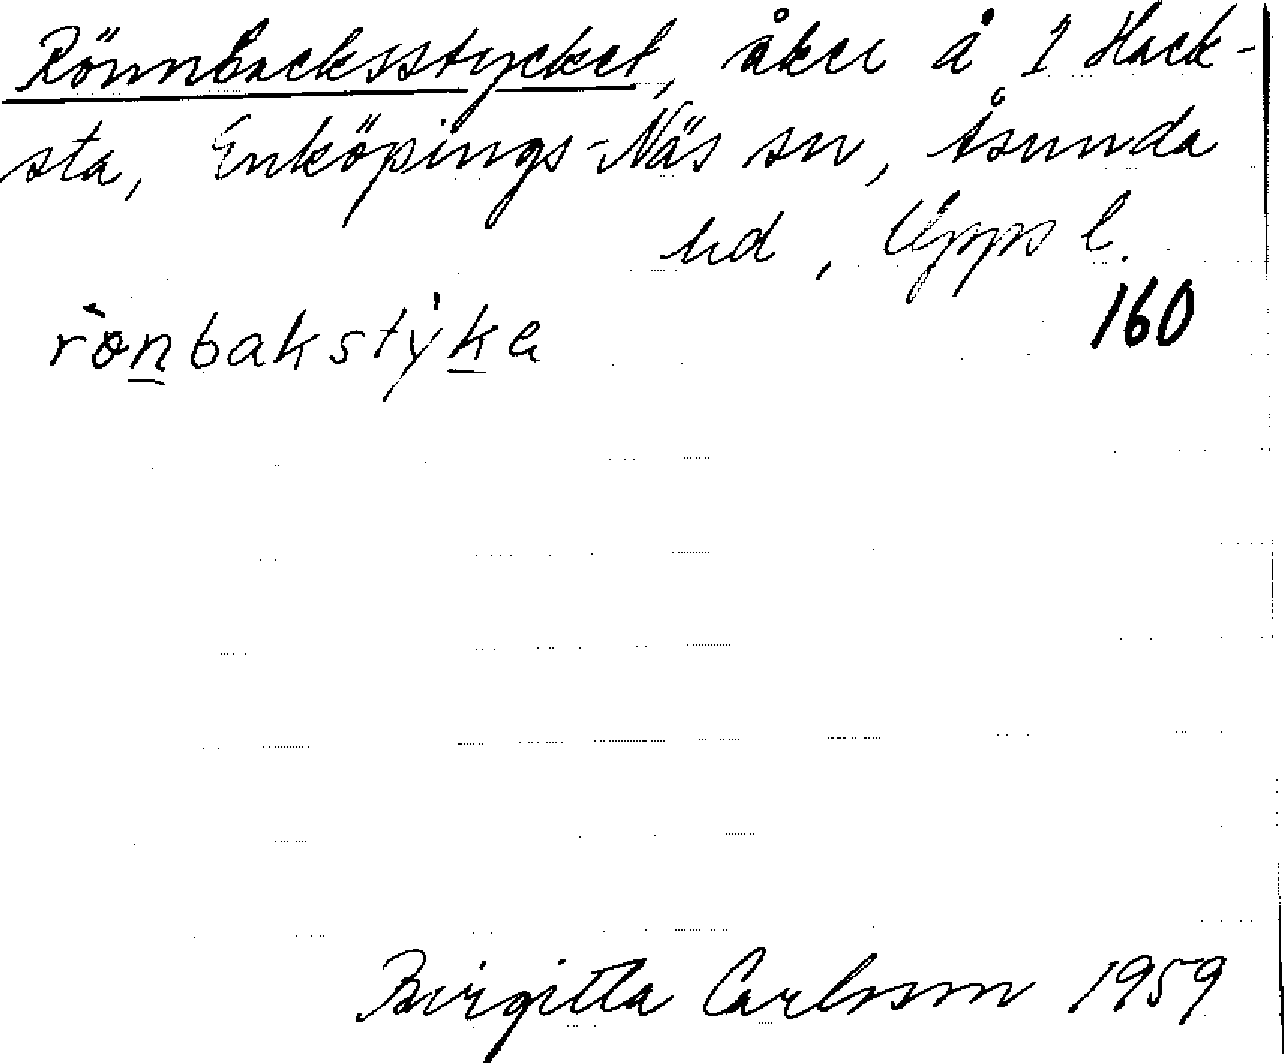 Rönnbacksstycket, åker å 1 Hack-
sta, Enköpings-Näs sn, Åsunda
hd, Upps l.
160
rònbakstỳka
Birgitta Carlsson 1959